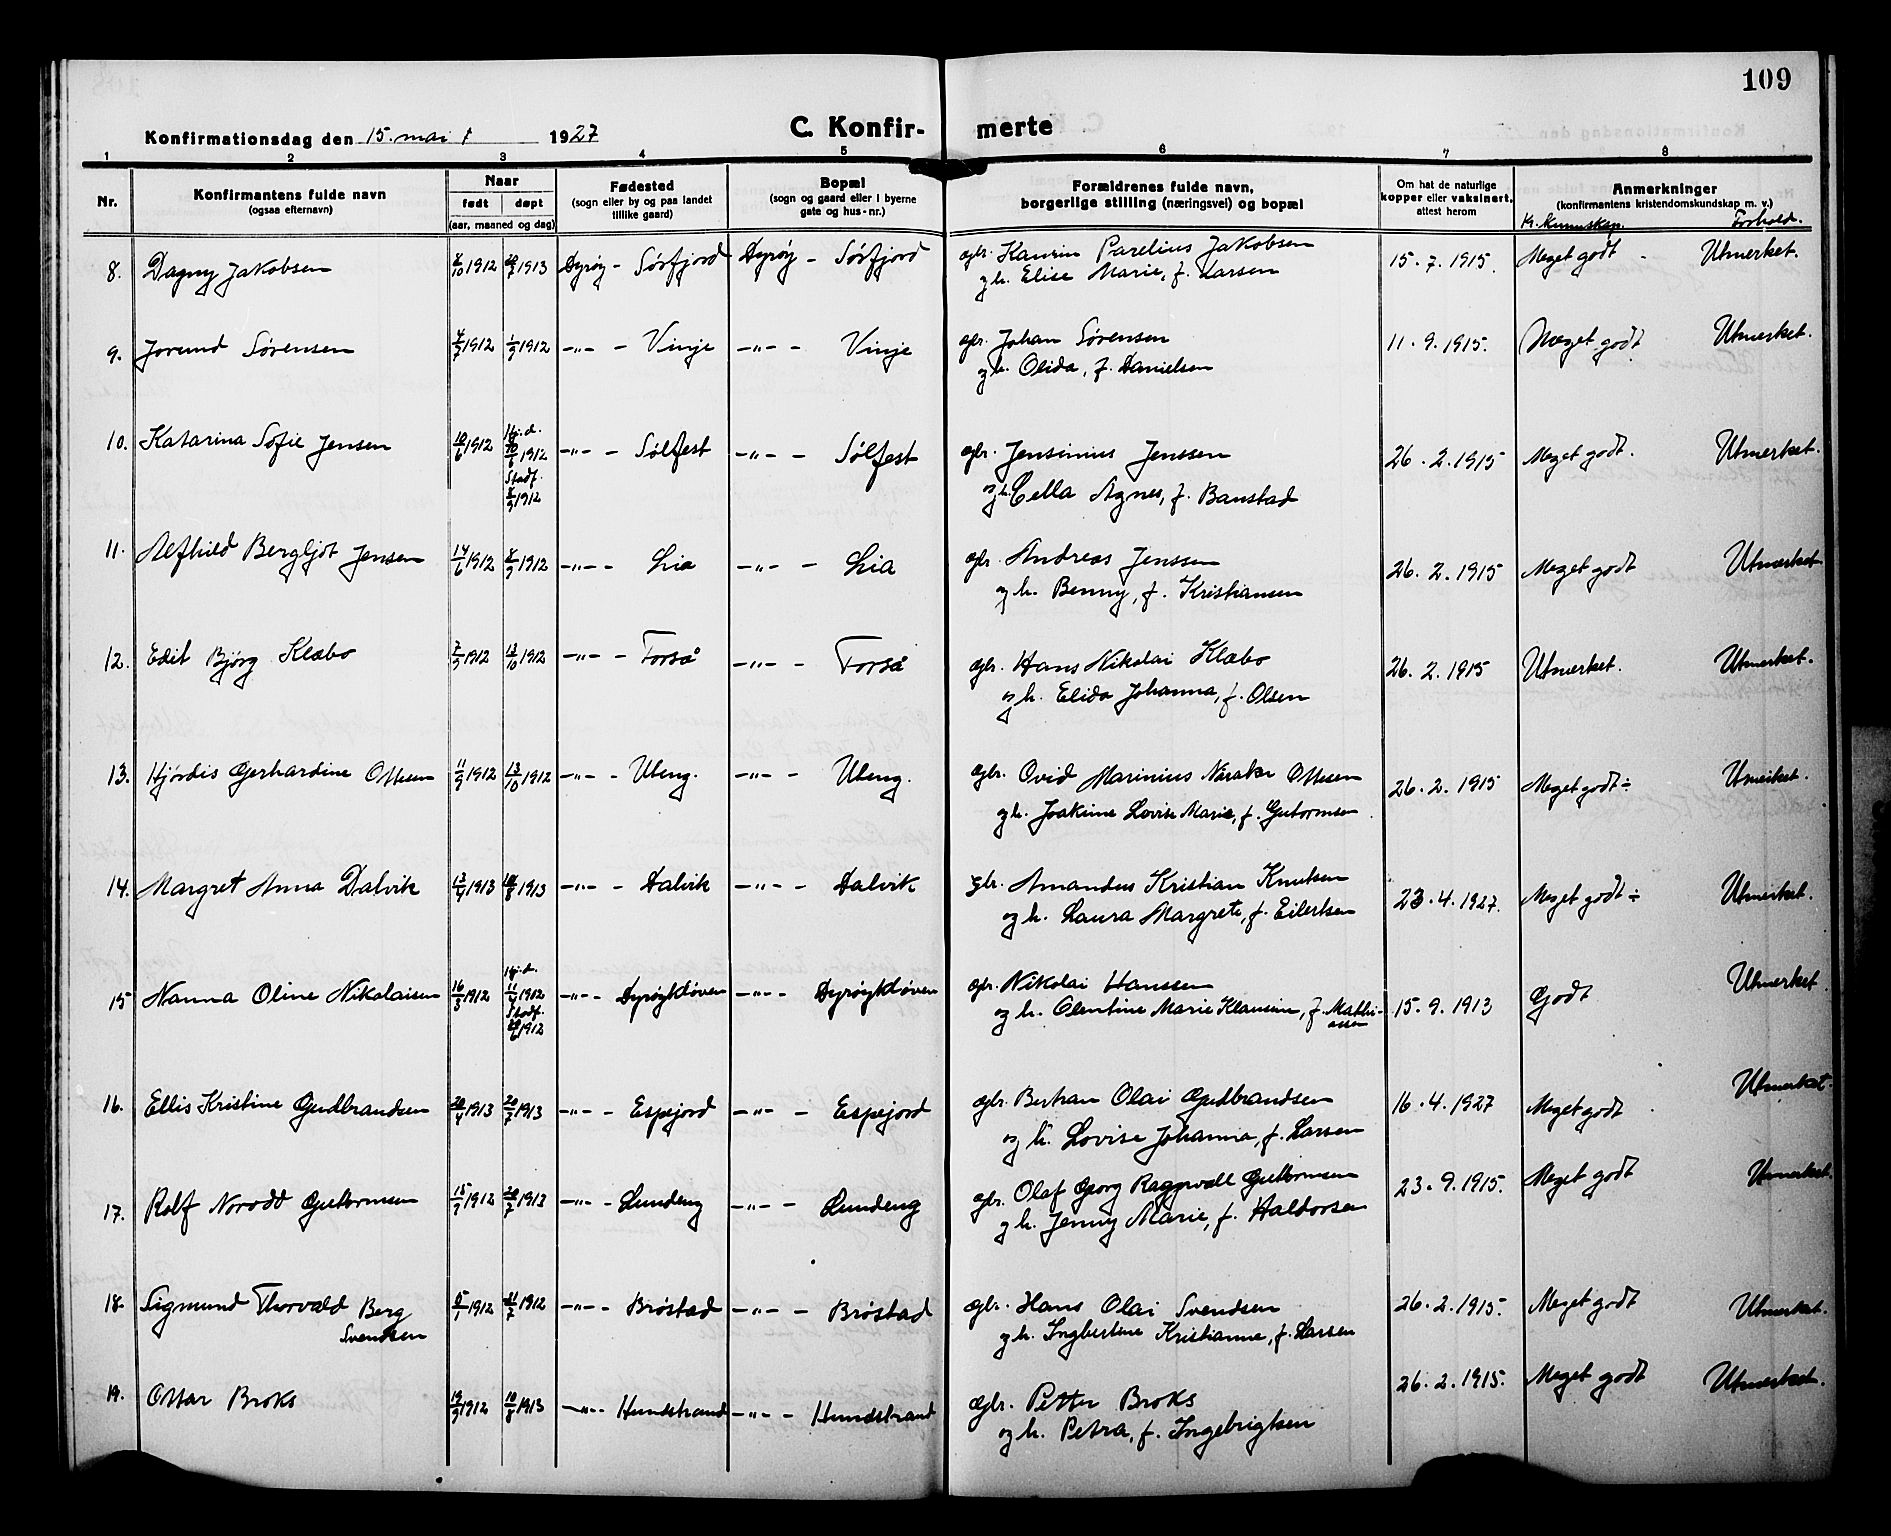 109
Konfirmationsdag den 15. mai 1927
C. Konfirmerte
1 2 3 4 5 6 7 8
Nr.
Konfirmantens fulde navn
(ogsaa efternavn)
Naar
født døpt
(aar, maaned og dag)
Fødested
(sogn eller by og paa landet
tillike gaard)
Bopæl
(sogn og gaard eller i byerne
gate og hus-nr.)
Forældrenes fulde navn,
borgerlige stilling (næringsvei) og bopæl
Om hat de naturlige
kopper eller vaksinert,
attest herom
Anmerkninger
(konfirmantens kristendomskundskap m. v.)
Kr. kunnskap. Forhold.
8. Dagny Jakobsen 1912 1913 Dyrøy - Sørfjord Dyrøy - Sørfjord gbr. Parelius Jakobsen 15.7.1915. Meget godt Utmerket.
og h. Elise Marie, f. Larsen
9. Jorund Sørensen 4/7 1912 1/9 1912 -"- - Vinje -"- - Vinje gbr. Johan Sørensen 11.9.1915. Meget godt Utmerket.
og h. Olida, f. Danielsen
10. Katarina Sofie Jensen 10/6 1912 Hj.d. 1912 Stadf. 1912 -"- - Sølfest -"- - Sølfest gbr. Jensinius Jenssen 26.2.1915 Meget godt. Utmerket.
og h. Cella Agnes, f. Baustad
11. Alfhild Bergljot Jensen 14/6 1912 1912 -"- - Lia -"- - Lia gbr. Andreas Jenssen 26.2.1915 Meget godt Utmerket
og h. Benny, f. Kristiansen
12. Edit Bjørg Klæbo 7/9 1912 13/10 1912 -"- - Forså -"- - Forså gbr. Hans Nikolai Klæbo 26.2.1915 Utmerket. Utmerket.
og h. Elida Johanna, f. Olsen
13. Hjørdis Gerhardine Ottesen 11/9 1912 13/10 1912 -"- - Uteng. -"- - Uteng. gbr. Ovid Marinius Ottesen 26.2.1915 Meget godt ÷ Utmerket.
og h. Joakime Lovise Marie, f. Guttormsen
14. Margret Anna Dalvik 13/4 1913 1913 -"- - Dalvik -"- - Dalvik gbr. Amandus Kristian Knutsen 23.4.1927. Meget godt ÷ Utmerket.
og h. Laura Margrete, f. Eilertsen
15 Nanna Oline Nikolaisen 16/3 1912 Hj.d. 11/4 1912 Stadf. 1912 -"- - Dyrøykløven -"- - Dyrøykløven gbr. Nikolai Hanssen 15.9.1913 Godt Utmerket
og h. Olentine Marie Klausine, f. Mathi-
assen
16. Ellis Kristine Gudbrandsen 20/4 1913 20/7 1913 -"- - Espejord -"- - Espejord gbr. Bertran Olai Gudbrandsen 16.4.1927 Meget godt Utmerket.
og h. Lovise Johanna, f. Larsen
17. Rolf Norodd Guttormsen 1912 20/7 1913 -"- - Lundeng -"- - Lundeng gbr. Olaf Georg Ragnvall Guttormsen 23.9.1915. Meget godt Utmerket.
og h. Jenny Marie, f. Haldorsen
18. Sigmund Thorvald Berg 1912 1912 -"- - Brøstad -"- - Brøstad gbr. Hans Olai Svendsen 26.2.1915. Meget godt Utmerket.
Svendsen og h. Ingbertine Kristianne, f. Larsen
19. Ottar Broks 19/9 1912 10/8 1913 -"- - Hundstrand -"- - Hundstrand gbr. Petter Broks 26.2.1915. Meget godt Utmerket.
og h. Petra, f. Ingebrigtsen